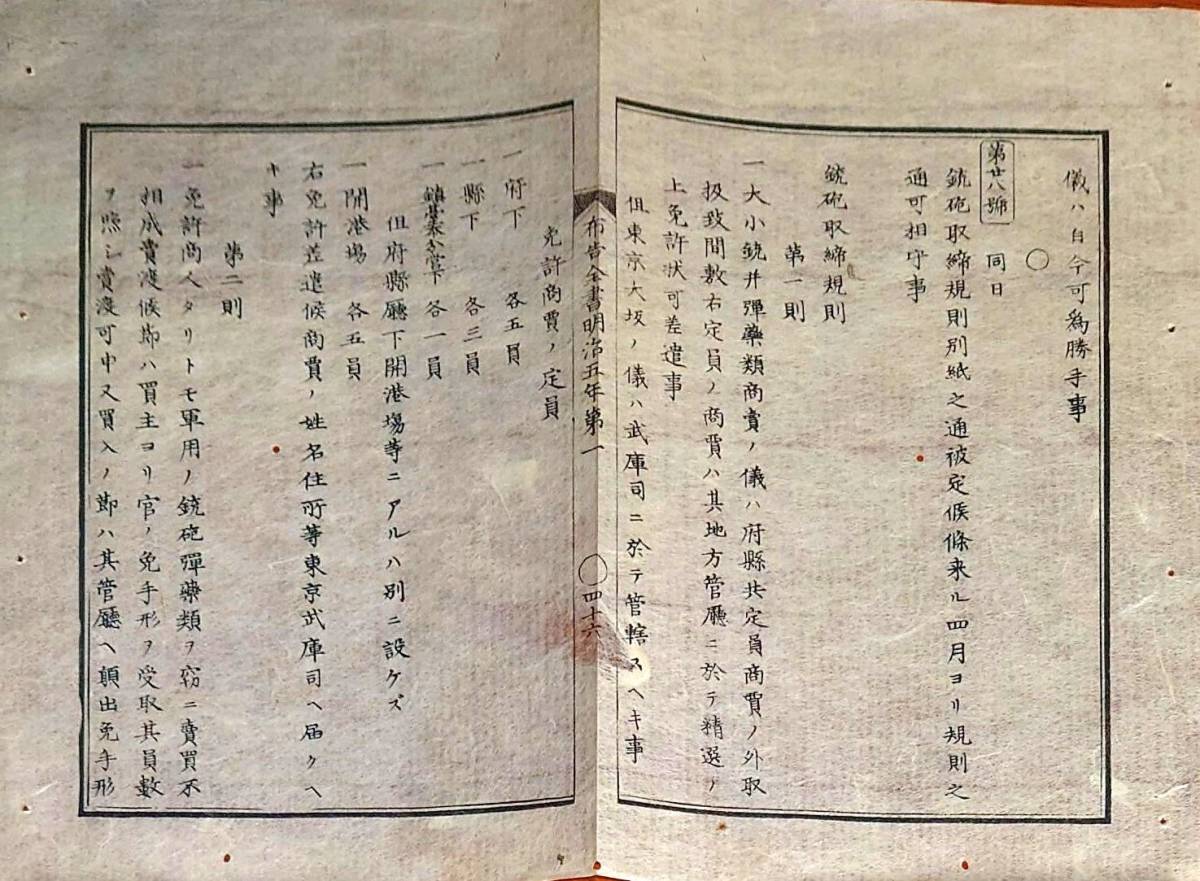 儀ハ自今可為勝手事
○
第廿八號 同日
銃砲取締規則別紙之通被定候條来ル四月ヨリ規則之
通可相守事
銃砲取締規則
第一則
一大小銃并彈藥類商賣ノ儀ハ府縣共定員商賈ノ外取
扱致間敷右定員ノ商賈ハ其地方管廳ニ於テ精選ノ
上免許状可差遣事
但東京大坂ノ儀ハ武庫司ニ於テ管轄スヘキ事
布告全書明治五年第一 ○四十六
免許商賈ノ定員
一府下 各五員
一縣下 各三員
一鎮臺本分營下 各一員
但府縣廳下開港場等ニアルハ別ニ設ケズ
一開港場 各五員
右免許差遣候商賈ノ姓名住所等東京武庫司ヘ届クヘ
キ事
第二則
一免許商人タリトモ軍用ノ銃砲彈藥類ヲ窃ニ賣買不
相成賣渡候節ハ買主ヨリ官ノ免手形ヲ受取其員數
ヲ照シ賣渡可申又買入ノ節ハ其管廳ヘ願出免手形